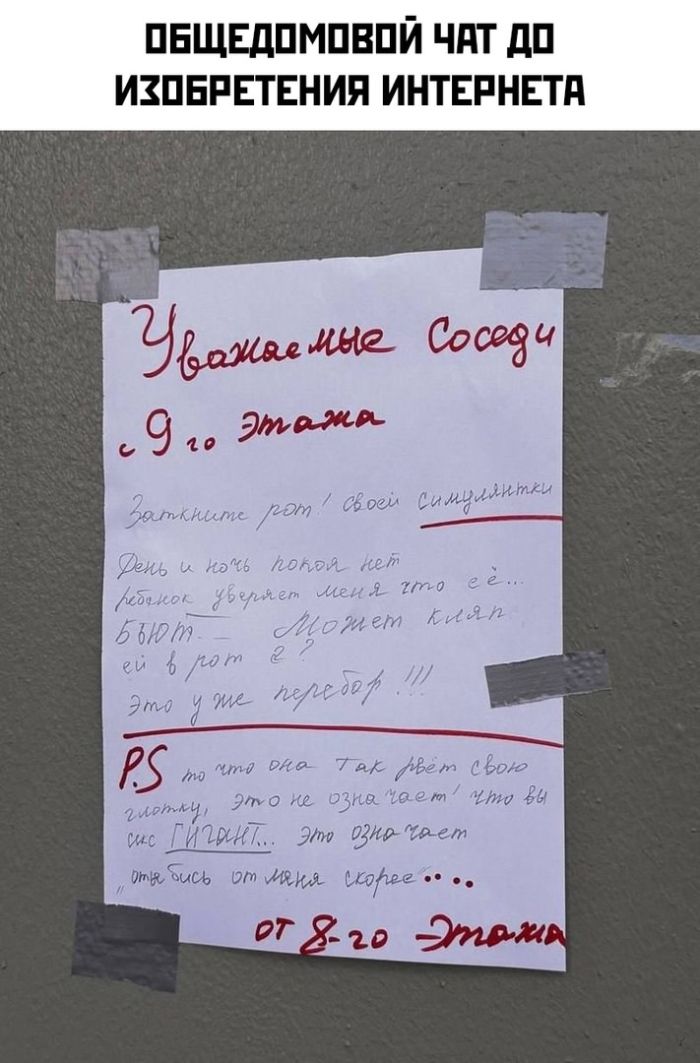 ОБЩЕДОМОВОЙ ЧАТ ДО
ИЗОБРЕТЕНИЯ ИНТЕРНЕТА
Уважаемые Соседи
с 9 го Этажа
Заткните рот! своей симулянтки
День и ночь покоя нет
ребёнок уверяет меня что её...
БЬЮТ. Может кляп
ей в рот е?
Это уже перебор!!!
P.S то что она так рвёт свою
глотку, это не означает что вы
сикс ГИГАНТ... Это означает
"отъебись от меня скорее....
от 8-го Этажа